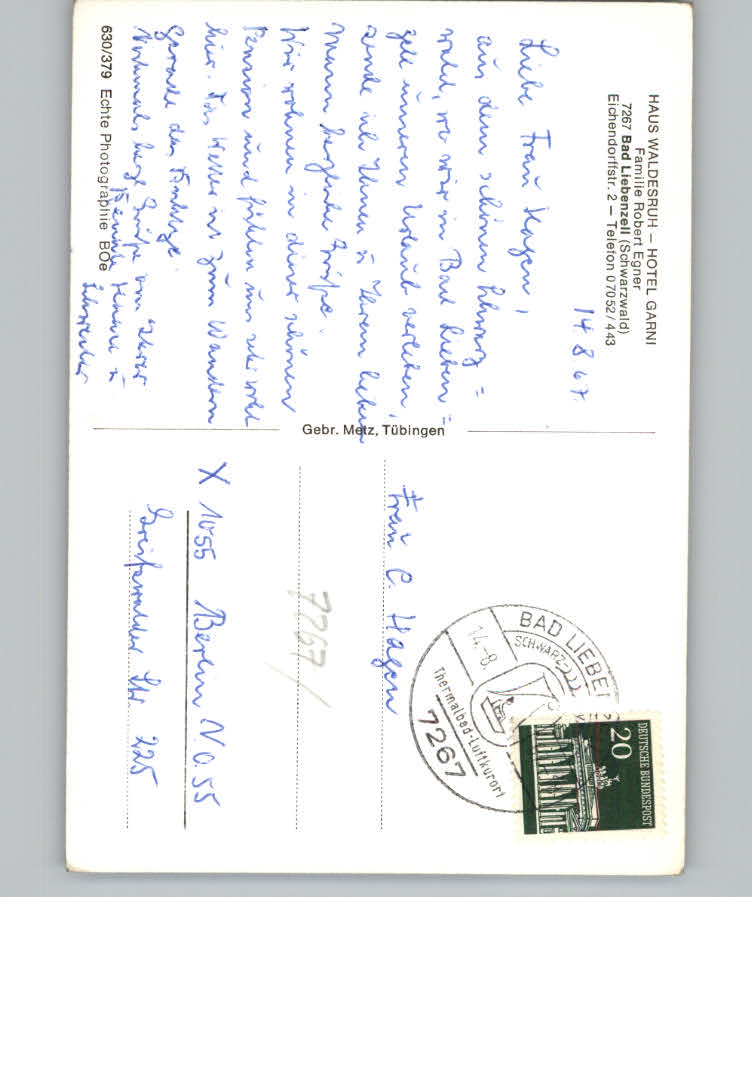 HAUS WALDESRUH – HOTEL GARNI
Familie Robert Egner
7267 Bad Liebenzell (Schwarzwald)
Eichendorffstr. 2 – Telefon 07052/443
14 8 67.
Liebe Frau Hagen,
aus dem schönen Schwarz=
wald, wo wir in Bad Lieben=
zell unseren Urlaub verleben,
sende ich Ihnen u Ihrem lieben
Mann herzliche Grüße.
Wir wohnen in einer schönen
Pension und fühlen uns sehr wohl
hier. Das Wetter ist zum Wandern
gerade das Richtige.
Nochmals herzl Grüße von Ihrer
630/379 Echte Photographie BOe
Gebr. Metz, Tübingen
Frau C. Hagen
7267/
X 1055 Berlin N.O.55
Greifswalder Str 225
BAD LIEBEN
SCHWARZ
14.-8
Thermalbad-Luftkurort
7267
DEUTSCHE BUNDESPOST
20